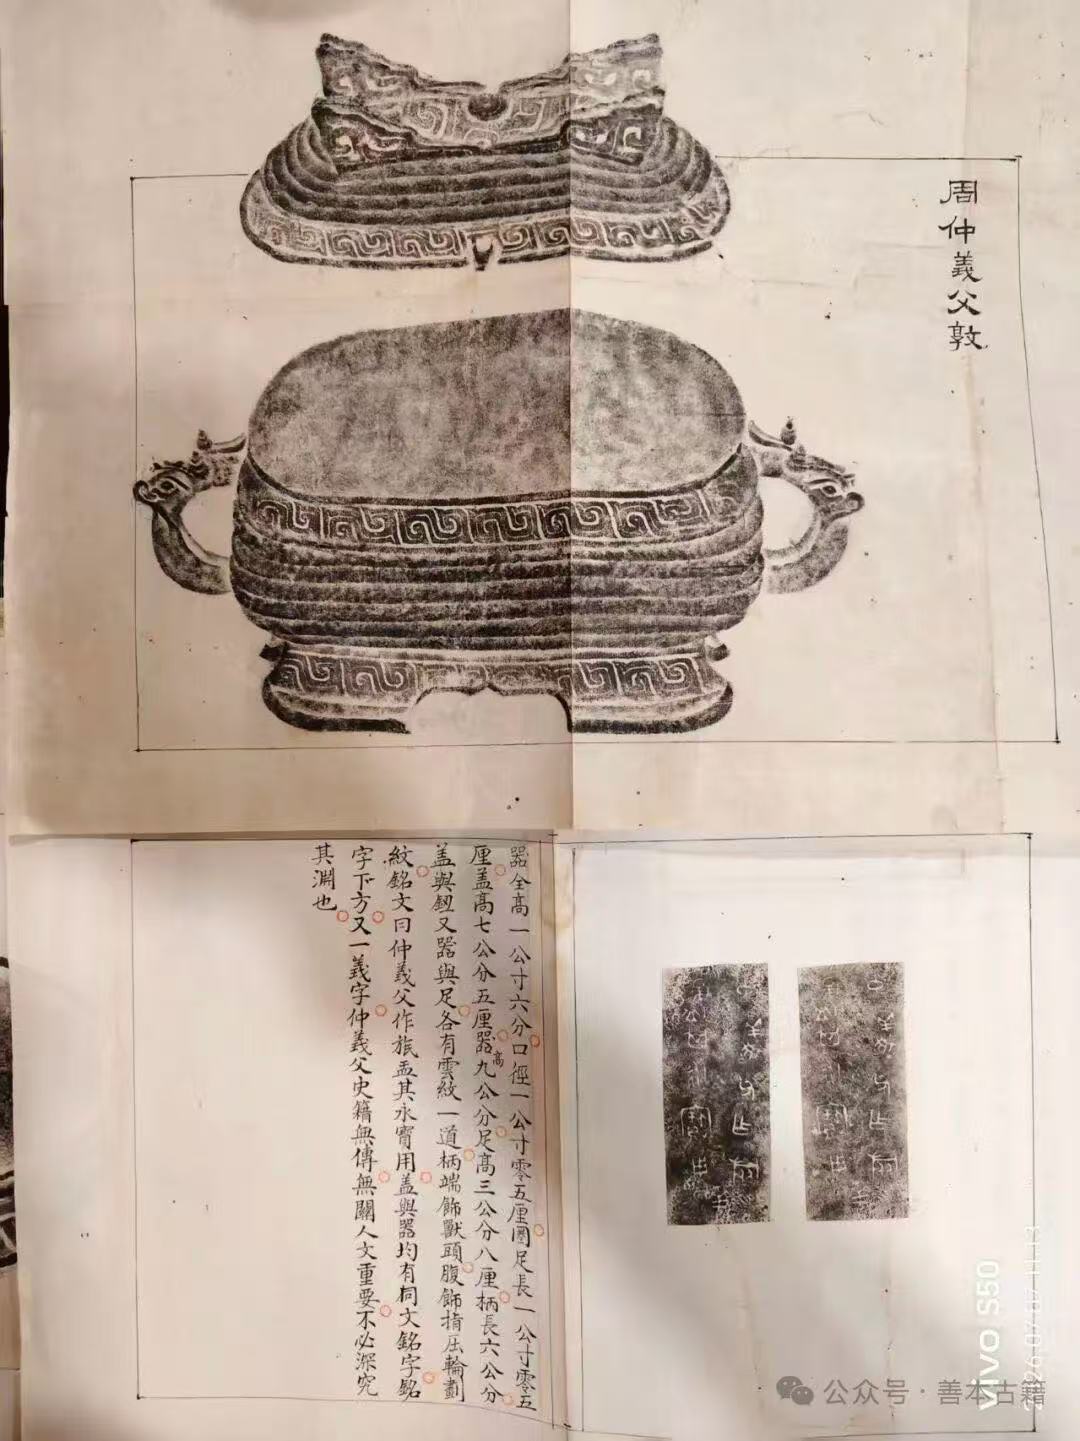 周仲義父敦
器全高一公寸六分口徑一公寸零五厘圈足長一公寸零五
厘盖高七公分五厘器高九公分足高三公分八厘柄長六公分
盖與鈕又器與足各有雲紋一道柄端飾獸頭腹飾指压輪劃
紋銘文曰仲義父作旅盂其永寳用盖與器均有同文銘字銘
字下方又一義字仲義父史籍無傳無關人文重要不必深究
其淵也
vivo S50
公众号·善本古籍